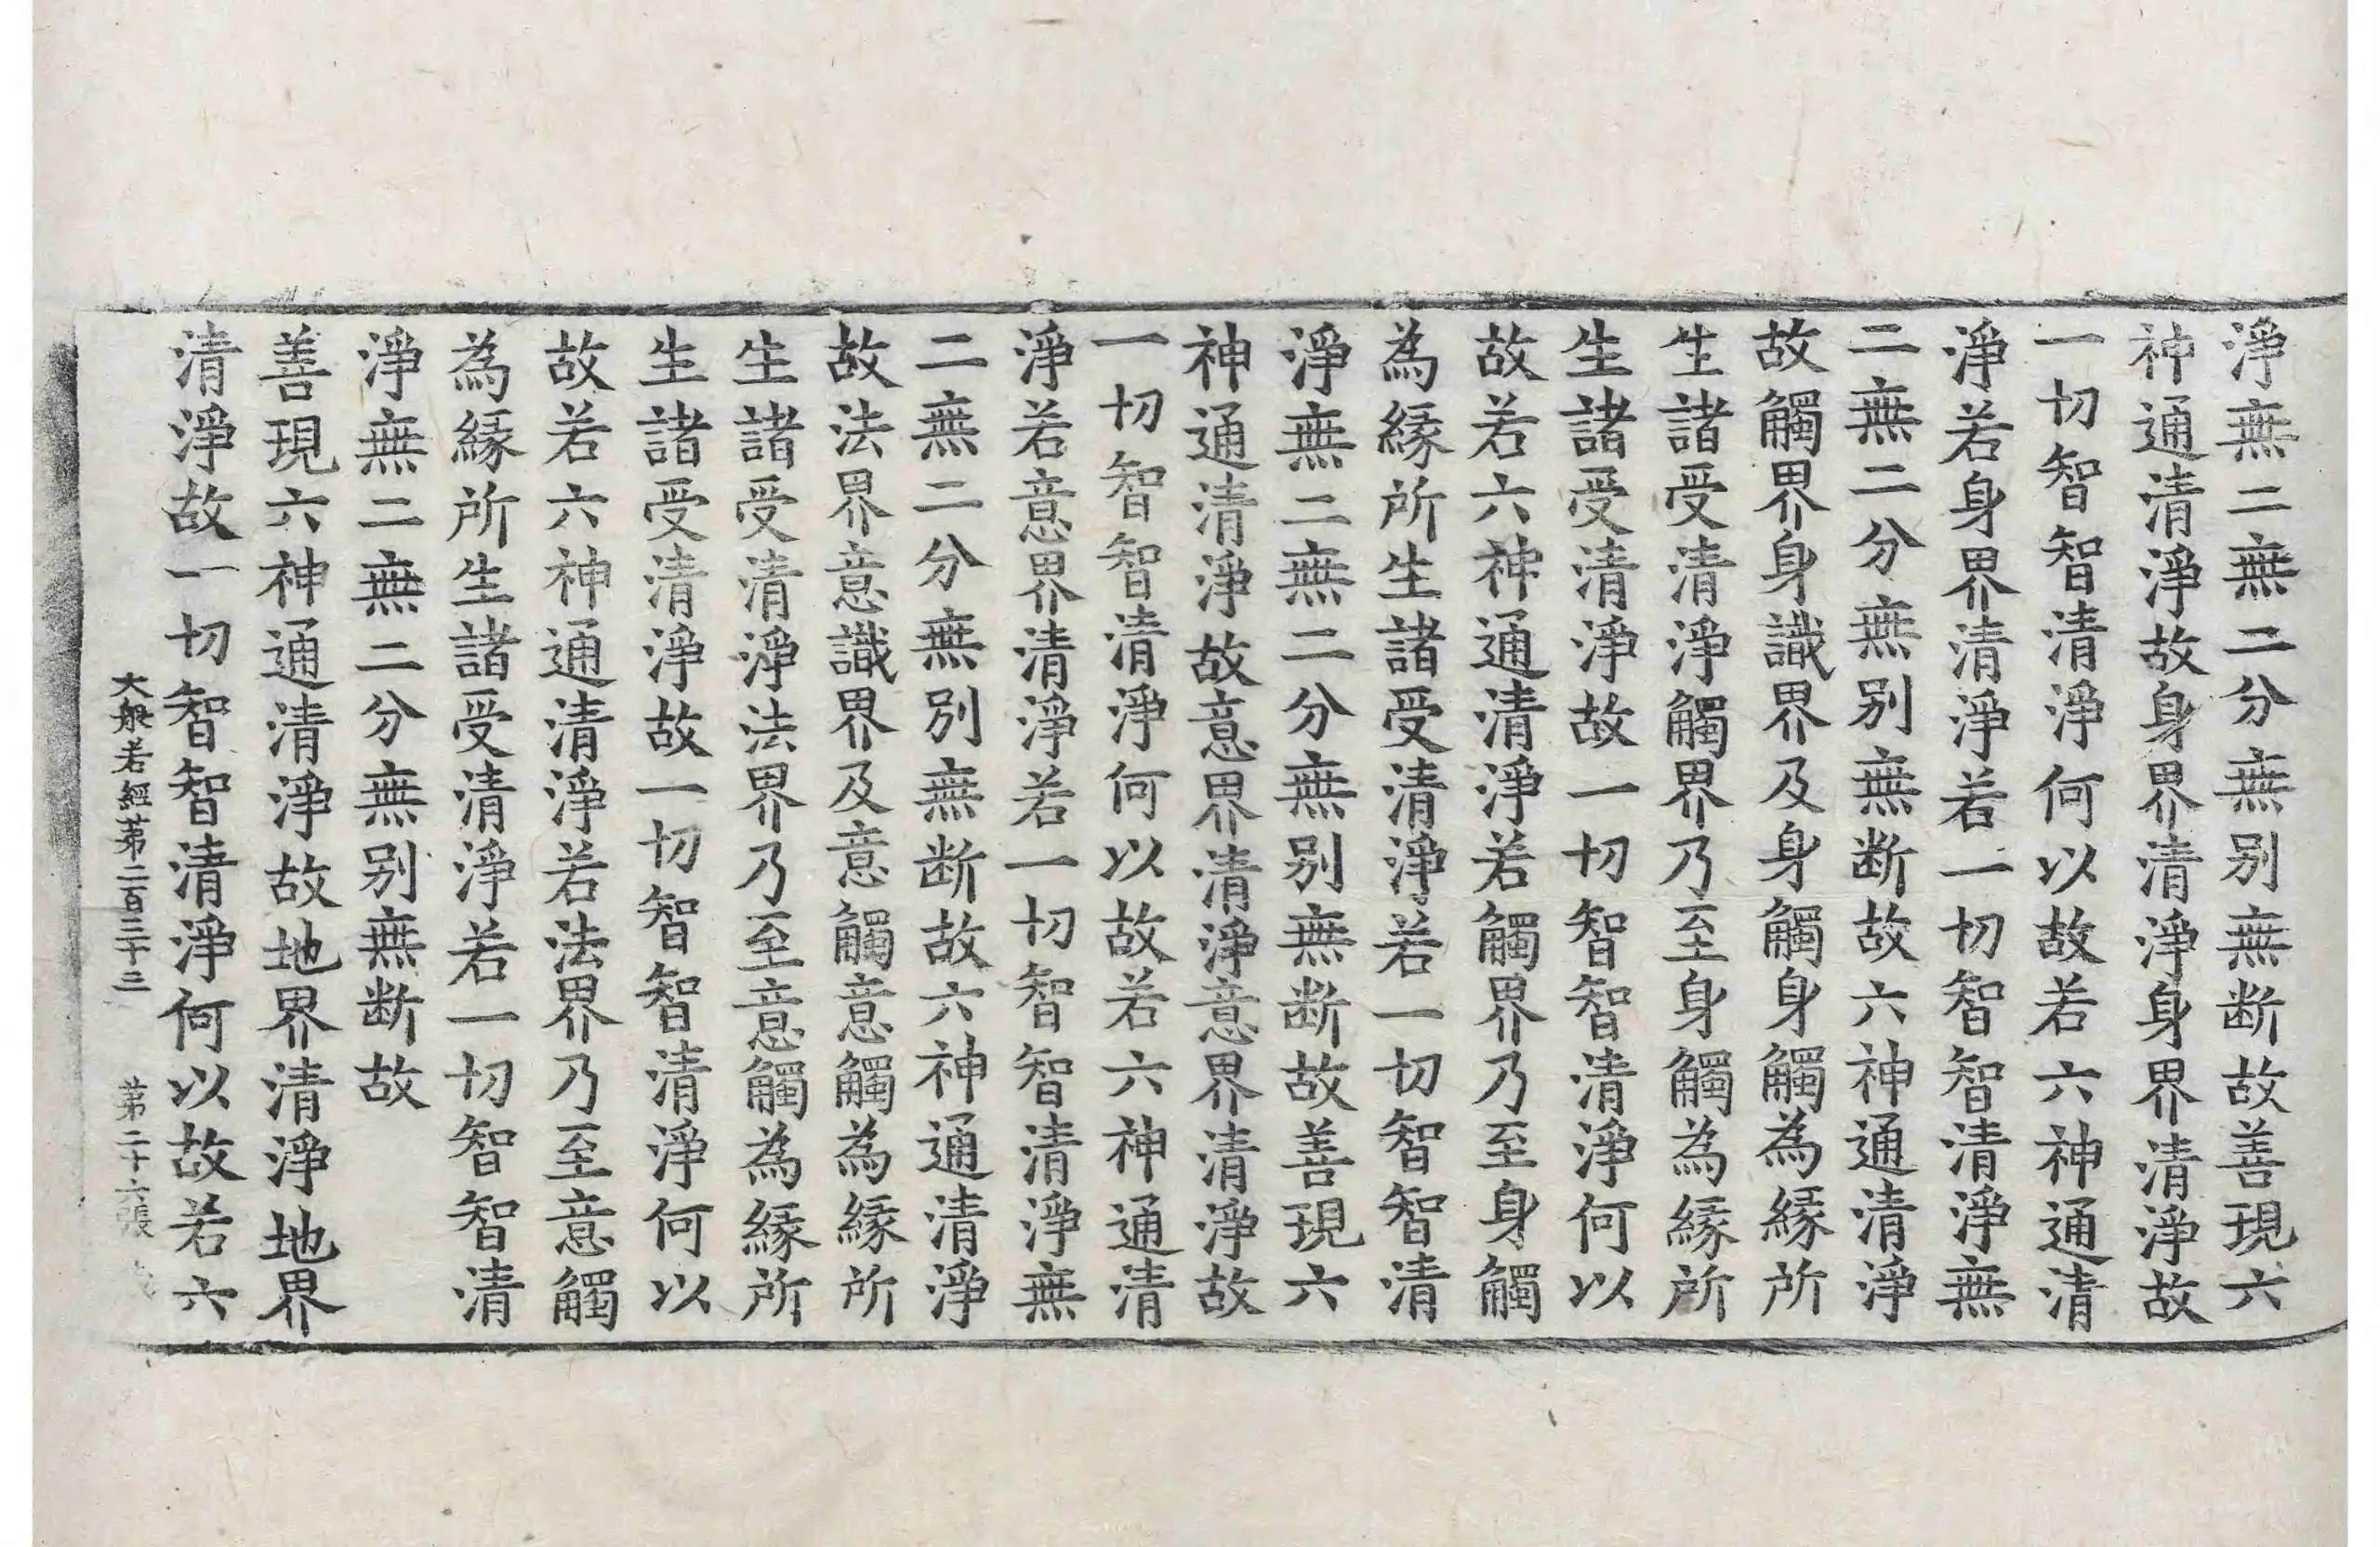 淨無二無二分無別無斷故善現六
神通清淨故身界清淨身界清淨故
一切智智清淨何以故若六神通清
淨若身界清淨若一切智智清淨無
二無二分無別無斷故六神通清淨
故觸界身識界及身觸身觸為緣所
生諸受清淨觸界乃至身觸為緣所
生諸受清淨故一切智智清淨何以
故若六神通清淨若觸界乃至身觸
為緣所生諸受清淨若一切智智清
淨無二無二分無別無斷故善現六
神通清淨故意界清淨意界清淨故
一切智智清淨何以故若六神通清
淨若意界清淨若一切智智清淨無
二無二分無別無斷故六神通清淨
故法界意識界及意觸意觸為緣所
生諸受清淨法界乃至意觸為緣所
生諸受清淨故一切智智清淨何以
故若六神通清淨若法界乃至意觸
為緣所生諸受清淨若一切智智清
淨無二無二分無別無斷故
善現六神通清淨故地界清淨地界
清淨故一切智智清淨何以故若六
大般若經第二百三十三 第二十六張